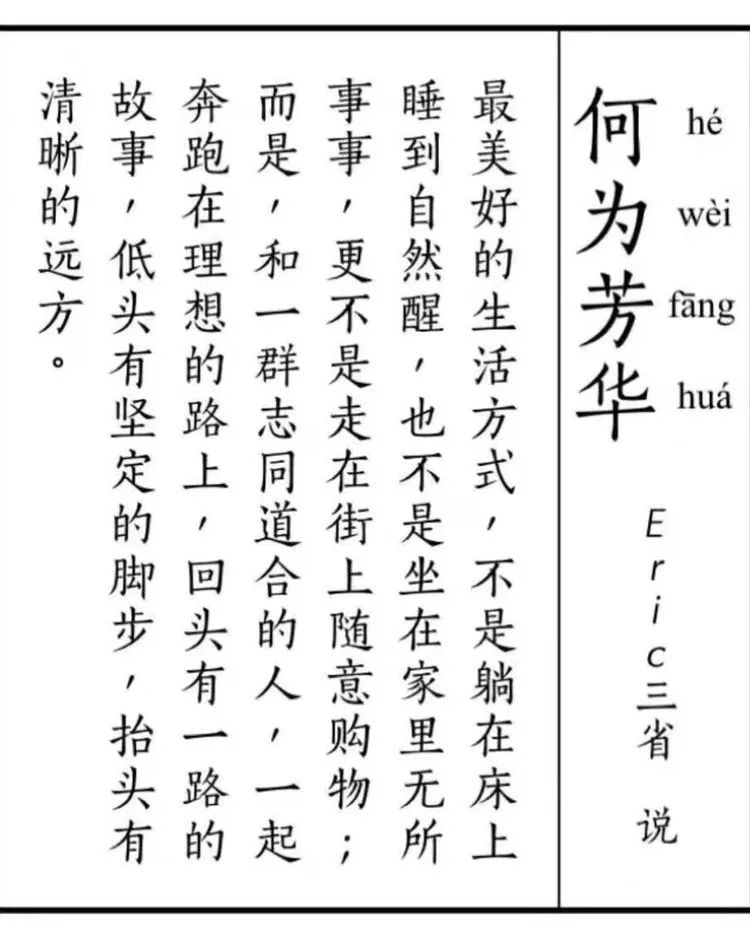 何为芳华
hé wèi fāng huá
Eric三省 说
最美好的生活方式，不是躺在床上
睡到自然醒，也不是坐在家里无所
事事，更不是走在街上随意购物；
而是，和一群志同道合的人，一起
奔跑在理想的路上，回头有一路的
故事，低头有坚定的脚步，抬头有
清晰的远方。